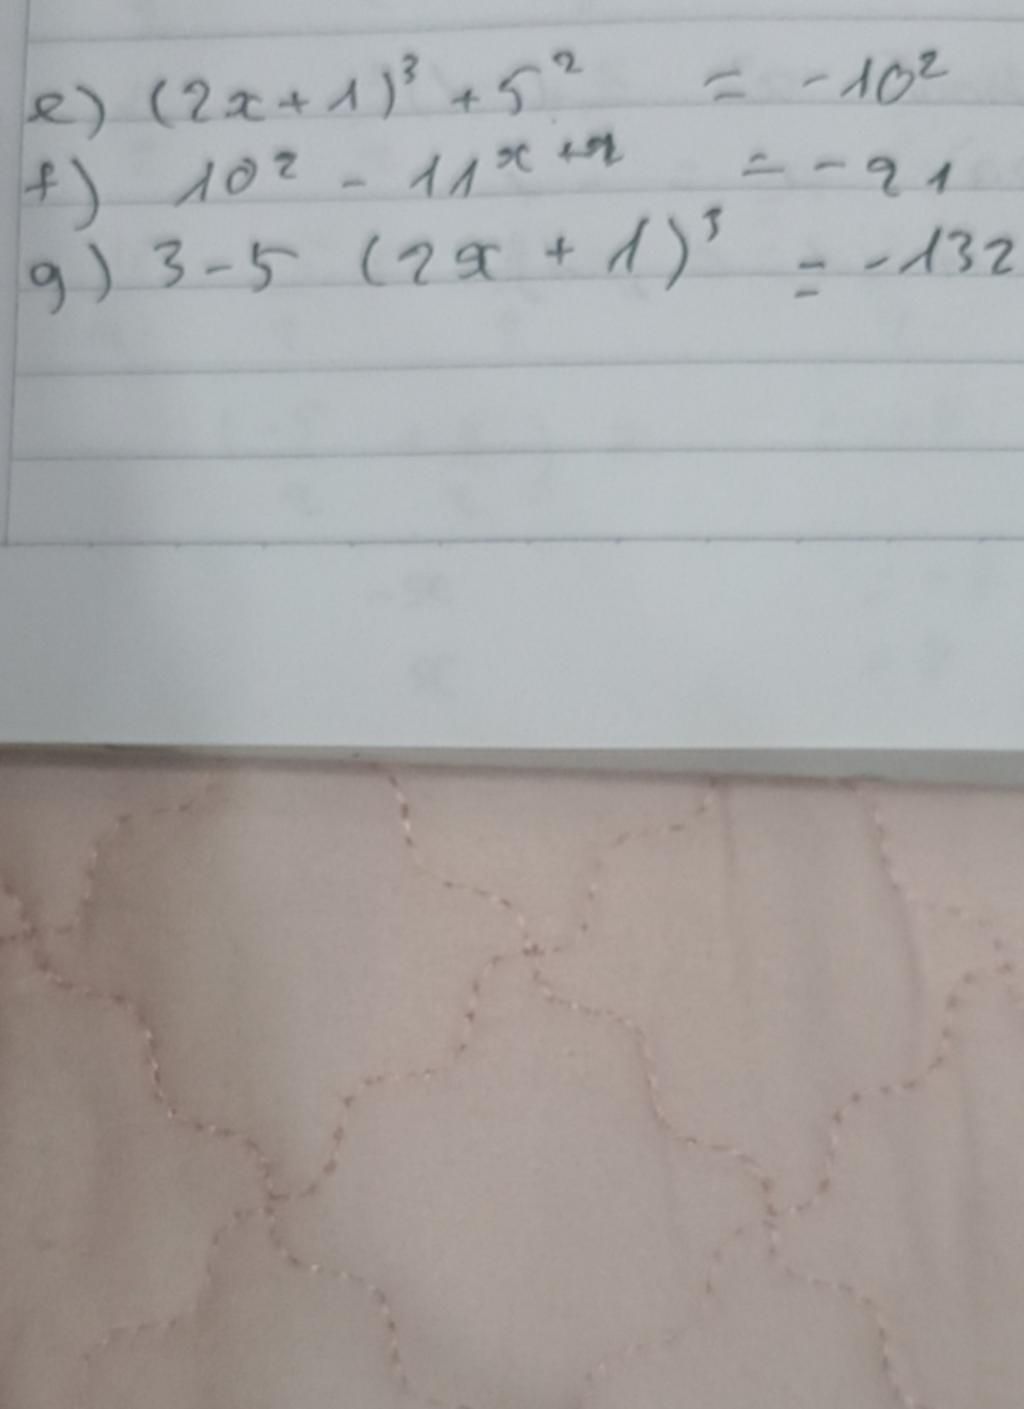 e) (2x+1)³ + 5² = -10²
f) 10² - 11ˣ⁺ = -21
g) 3-5 (2x + 1)³ = -132